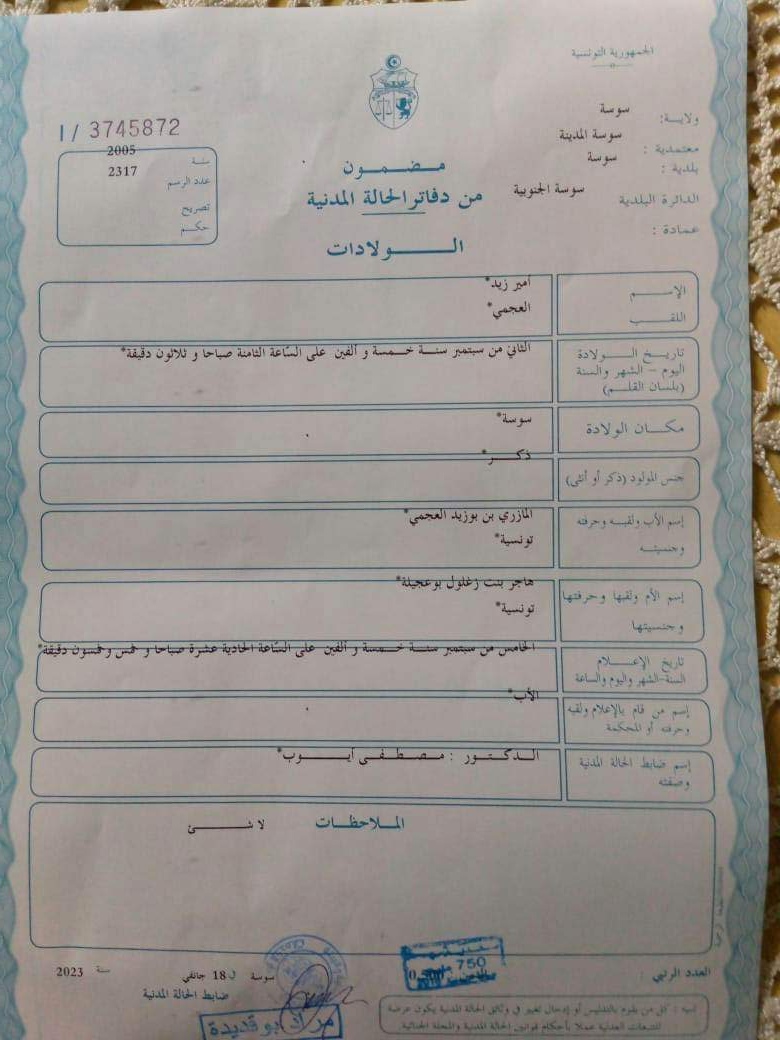 الجمهورية التونسية
ولاية: سوسة
معتمدية : سوسة المدينة
بلدية : سوسة
الدائرة البلدية سوسة الجنوبية
عمادة :
I / 3745872
سنة 2005
عدد الرسم 2317
تصريح
حكم
مضمون
من دفاتر الحالة المدنية
الولادات
الإسم أمير زيد*
اللقب العجمي*
تاريخ الولادة
اليوم - الشهر والسنة
(بلسان القلم)
الثاني من سبتمبر سنة خمسة و ألفين على الساعة الثامنة صباحا و ثلاثون دقيقة*
مكان الولادة سوسة*
جنس المولود (ذكر أو أنثى) ذكر*
إسم الأب ولقبه وحرفته
وجنسيته
المازري بن بوزيد العجمي*
تونسية*
إسم الأم ولقبها وحرفتها
وجنسيتها
هاجر بنت زغلول بوعجيلة*
تونسية*
تاريخ الإعلام
السنة-الشهر واليوم والساعة
الخامس من سبتمبر سنة خمسة و ألفين على الساعة الحادية عشرة صباحا و خمس وخمسون دقيقة*
إسم من قام بالإعلام ولقبه
وحرفته أو المحكمة
الأب*
إسم ضابط الحالة المدنية
وصفته
الدكتور : مصطفى أيوب*
الملاحظات
لا شئ
العدد الرتبي
750
سوسة في 18 جانفي سنة 2023
ضابط الحالة المدنية
تنبيه : كل من يقوم بالتدليس أو إدخال تغيير في وثائق الحالة المدنية يكون عرضة
للتتبعات العدلية عملا بأحكام قوانين الحالة المدنية والمجلة الجنائية.